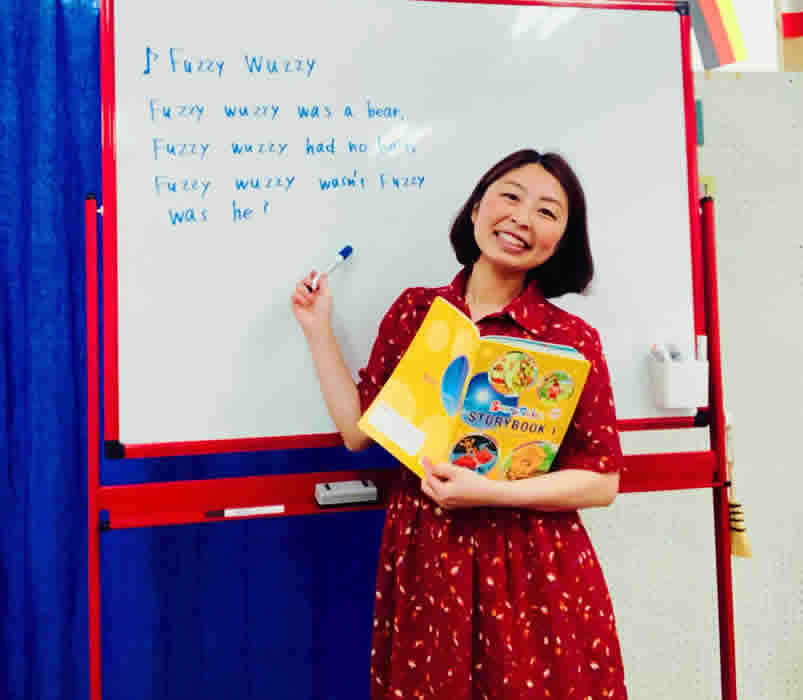 ♪ Fuzzy Wuzzy
Fuzzy wuzzy was a bear.
Fuzzy wuzzy had no
Fuzzy wuzzy wasn't Fuzzy
was he?
STORYBOOK 1